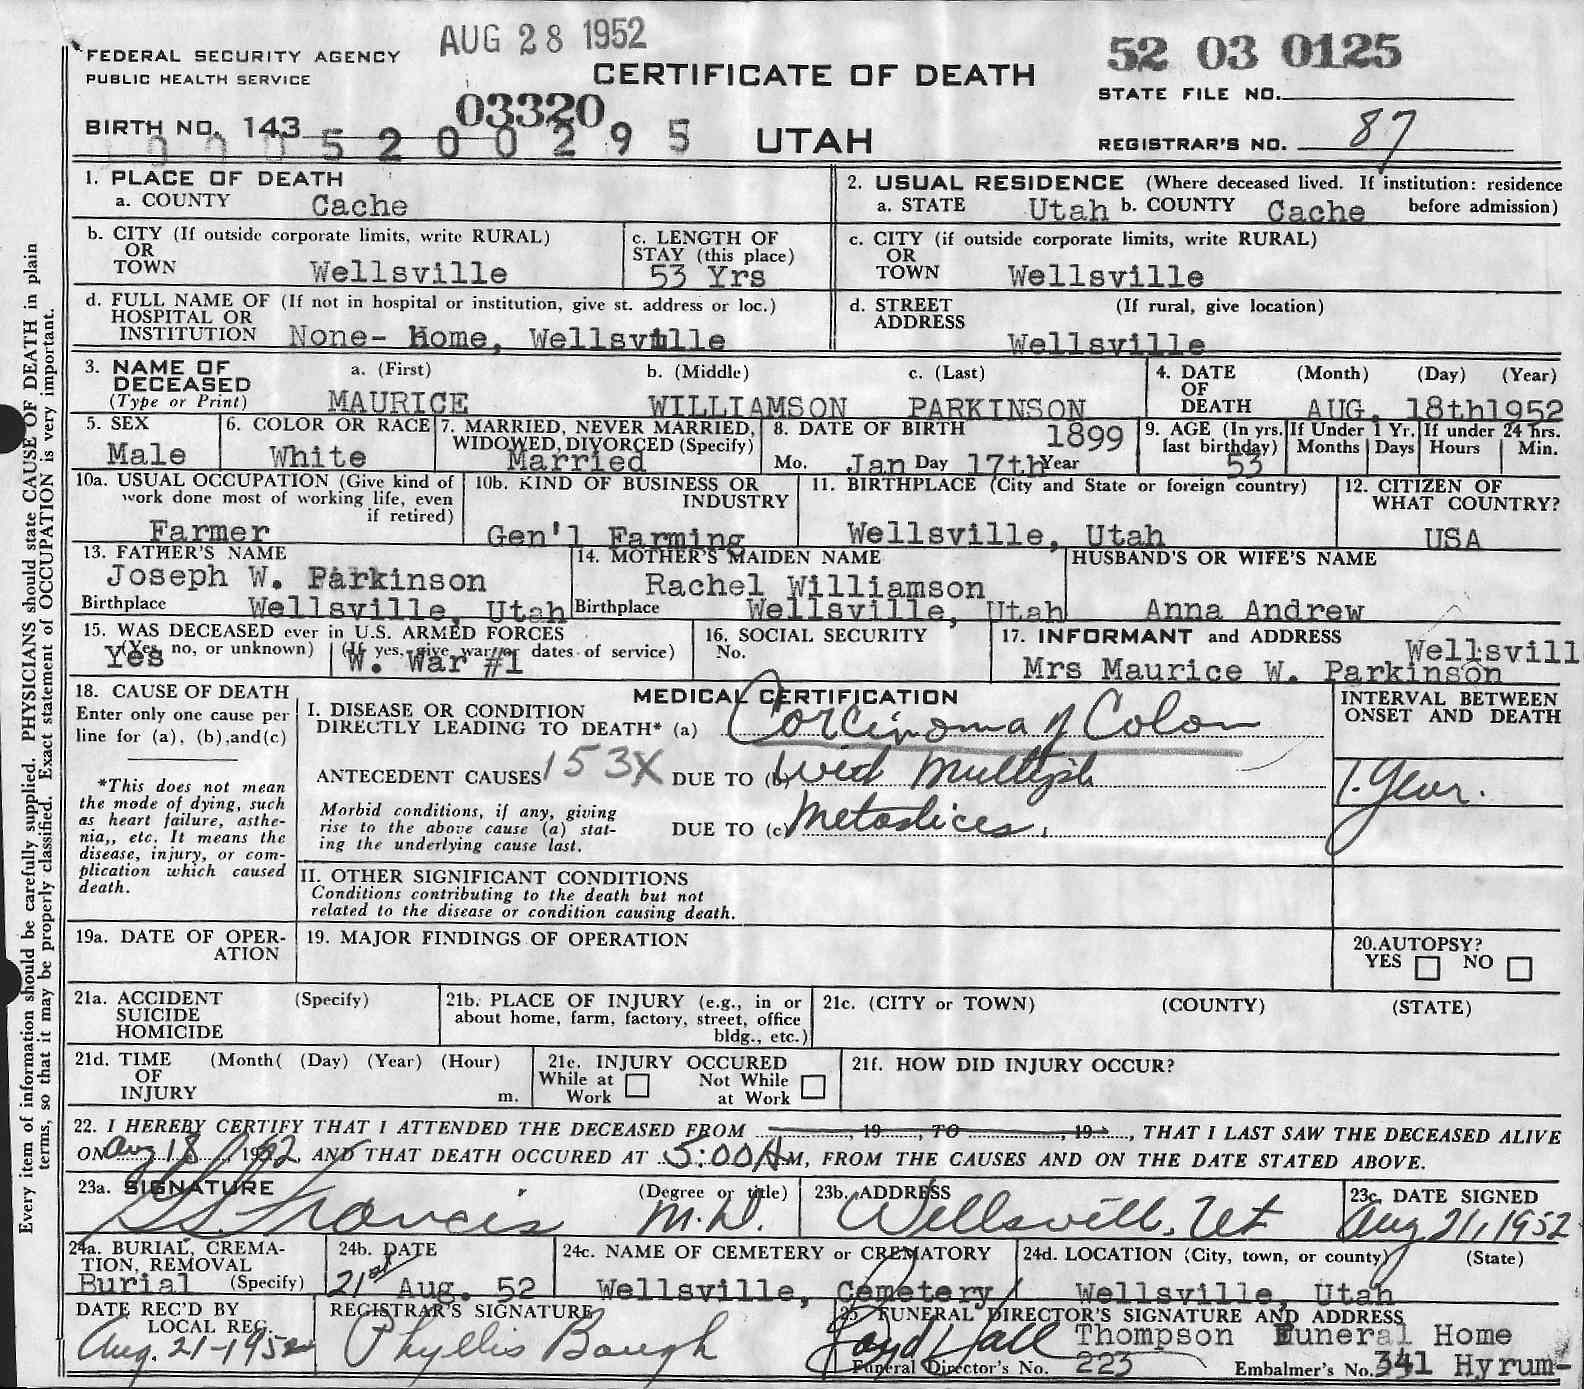 AUG 28 1952
FEDERAL SECURITY AGENCY
PUBLIC HEALTH SERVICE
CERTIFICATE OF DEATH
52 03 0125
STATE FILE NO.
03320
BIRTH NO. 143
5 2 0 0 2 9 5
UTAH
REGISTRAR'S NO. 87
1. PLACE OF DEATH
a. COUNTY Cache
2. USUAL RESIDENCE (Where deceased lived. If institution: residence
a. STATE Utah b. COUNTY Cache before admission)
b. CITY (If outside corporate limits, write RURAL)
OR
TOWN Wellsville
c. LENGTH OF
STAY (this place)
53 Yrs
c. CITY (if outside corporate limits, write RURAL)
OR
TOWN Wellsville
d. FULL NAME OF (If not in hospital or institution, give st. address or loc.)
HOSPITAL OR
INSTITUTION None- Home, Wellsville
d. STREET (If rural, give location)
ADDRESS
Wellsville
3. NAME OF a. (First) b. (Middle) c. (Last)
DECEASED
(Type or Print) MAURICE WILLIAMSON PARKINSON
4. DATE (Month) (Day) (Year)
OF
DEATH AUG. 18th1952
5. SEX
Male
6. COLOR OR RACE
White
7. MARRIED, NEVER MARRIED,
WIDOWED, DIVORCED (Specify)
Married
8. DATE OF BIRTH 1899
Mo. Jan Day 17th Year
9. AGE (In yrs.
last birthday)
53
If Under 1 Yr.
Months Days
If under 24 hrs.
Hours Min.
10a. USUAL OCCUPATION (Give kind of
work done most of working life, even
if retired)
Farmer
10b. KIND OF BUSINESS OR
INDUSTRY
Gen'l Farming
11. BIRTHPLACE (City and State or foreign country)
Wellsville, Utah
12. CITIZEN OF
WHAT COUNTRY?
USA
13. FATHER'S NAME
Joseph W. Parkinson
Birthplace Wellsville, Utah
14. MOTHER'S MAIDEN NAME
Rachel Williamson
Birthplace Wellsville, Utah
HUSBAND'S OR WIFE'S NAME
Anna Andrew
15. WAS DECEASED ever in U.S. ARMED FORCES
(Yes, no, or unknown) (If yes, give war or dates of service)
Yes W. War #1
16. SOCIAL SECURITY
No.
17. INFORMANT and ADDRESS Wellsvill
Mrs Maurice W. Parkinson
18. CAUSE OF DEATH
Enter only one cause per
line for (a), (b),and(c)
*This does not mean
the mode of dying, such
as heart failure, asthe-
nia,, etc. It means the
disease, injury, or com-
plication which caused
death.
MEDICAL CERTIFICATION
I. DISEASE OR CONDITION
DIRECTLY LEADING TO DEATH* (a) Corcinoma of Colon
ANTECEDENT CAUSES 153X DUE TO (b) with Multiple
Morbid conditions, if any, giving
rise to the above cause (a) stat-
ing the underlying cause last.
DUE TO (c) Metastices.
INTERVAL BETWEEN
ONSET AND DEATH
1. Year.
II. OTHER SIGNIFICANT CONDITIONS
Conditions contributing to the death but not
related to the disease or condition causing death.
19a. DATE OF OPER-
ATION
19. MAJOR FINDINGS OF OPERATION
20.AUTOPSY?
YES NO
21a. ACCIDENT (Specify)
SUICIDE
HOMICIDE
21b. PLACE OF INJURY (e.g., in or
about home, farm, factory, street, office
bldg., etc.)
21c. (CITY or TOWN) (COUNTY) (STATE)
21d. TIME (Month( (Day) (Year) (Hour)
OF
INJURY m.
21e. INJURY OCCURED
While at Work
Not While at Work
21f. HOW DID INJURY OCCUR?
22. I HEREBY CERTIFY THAT I ATTENDED THE DECEASED FROM , 19 , TO , 19 , THAT I LAST SAW THE DECEASED ALIVE
ON Aug 18, 1952, AND THAT DEATH OCCURED AT 5:00 A M, FROM THE CAUSES AND ON THE DATE STATED ABOVE.
23a. SIGNATURE (Degree or title)
Francis M.D.
23b. ADDRESS
Wellsville, Ut
23c. DATE SIGNED
Aug 21, 1952
24a. BURIAL, CREMA-
TION, REMOVAL
Burial (Specify)
24b. DATE
21st Aug. 52
24c. NAME OF CEMETERY or CREMATORY
Wellsville, Cemetery
24d. LOCATION (City, town, or county) (State)
Wellsville, Utah
DATE REC'D BY
LOCAL REG.
Aug. 21-1952
REGISTRAR'S SIGNATURE
Phyllis Baugh
25. FUNERAL DIRECTOR'S SIGNATURE AND ADDRESS
Loyd Hall Thompson Funeral Home
Funeral Director's No. 223 Embalmer's No. 341 Hyrum-
Every item of information should be carefully supplied. PHYSICIANS should state CAUSE OF DEATH in plain
terms, so that it may be properly classified. Exact statement of OCCUPATION is very important.